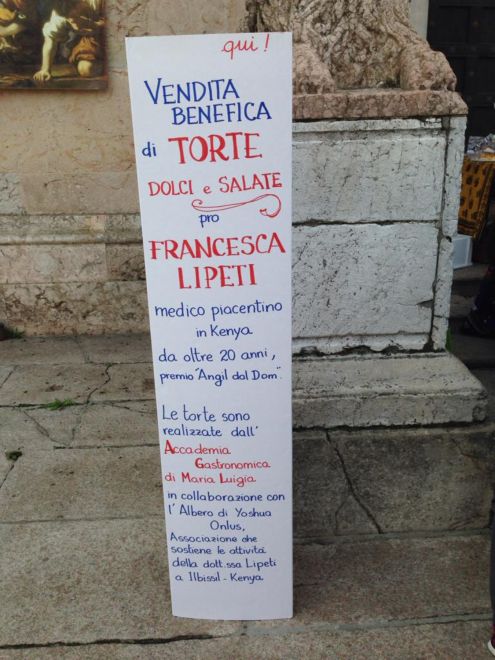 qui!
VENDITA
BENEFICA
di TORTE
DOLCI e SALATE
pro
FRANCESCA
LIPETI
medico piacentino
in Kenya
da oltre 20 anni,
premio "Angil dal Dom".
Le torte sono
realizzate dall'
Accademia
Gastronomica
di Maria Luigia
in collaborazione con
l'Albero di Yoshua
Onlus,
Associazione che
sostiene le attività
della dott.ssa Lipeti
a Ilbissil - Kenya